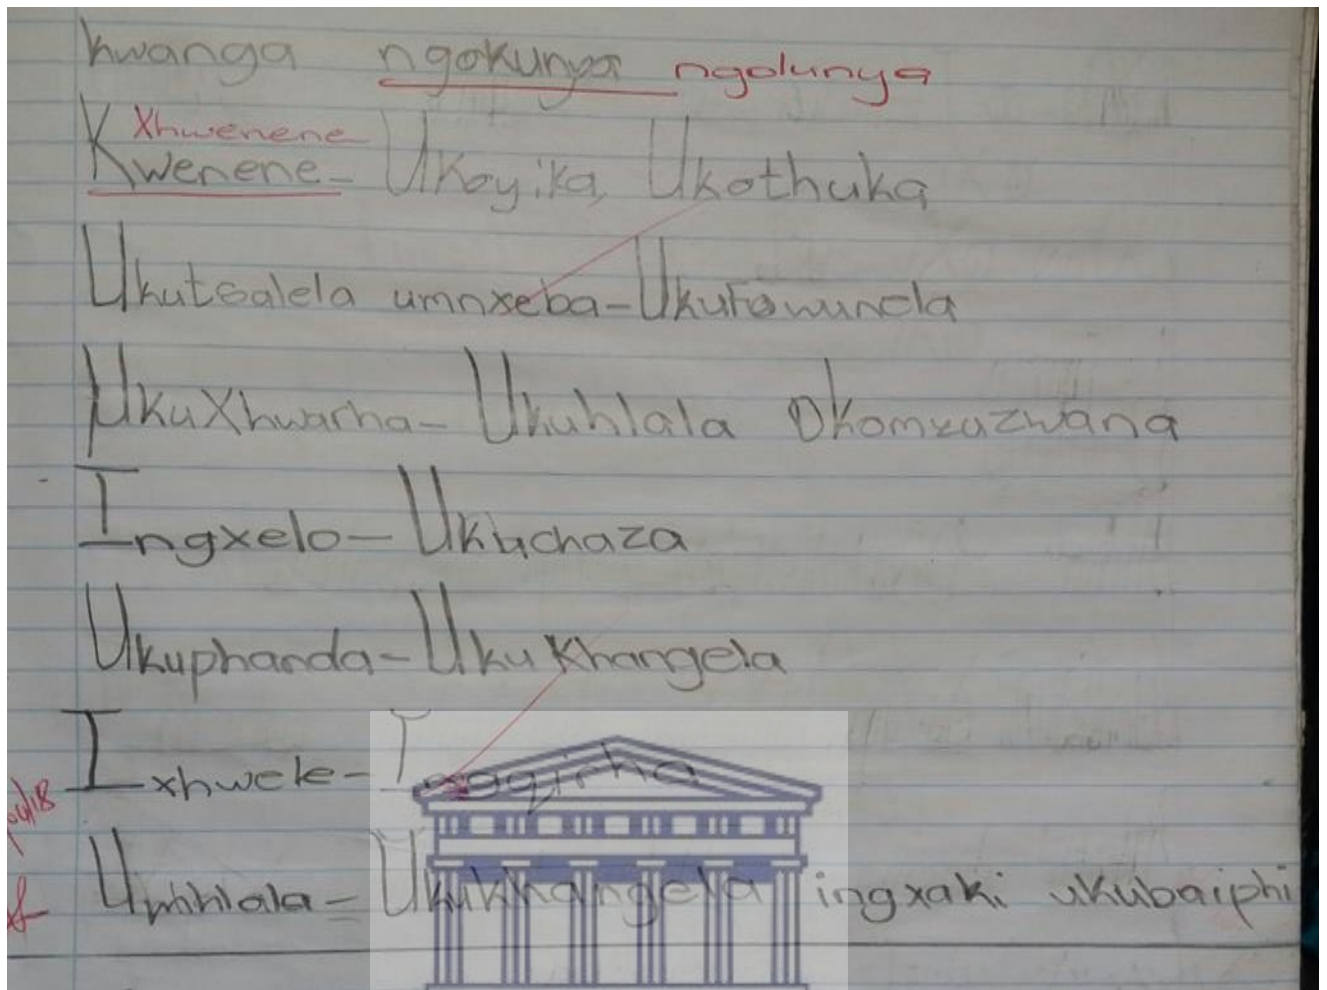 kwanga ngokunya ngolunya
Xhwenene
Kwenene- Ukoyika, Ukothuka
Ukutsalela umnxeba-Ukufowunela
UkuXhwarha- Ukuhlala Okomzuzwana
Ingxelo- Ukuchaza
Ukuphanda- UkuKhangela
Ixhwele- Ingqirha
Umhlala- Ukukhangela ingxaki ukubaiphi